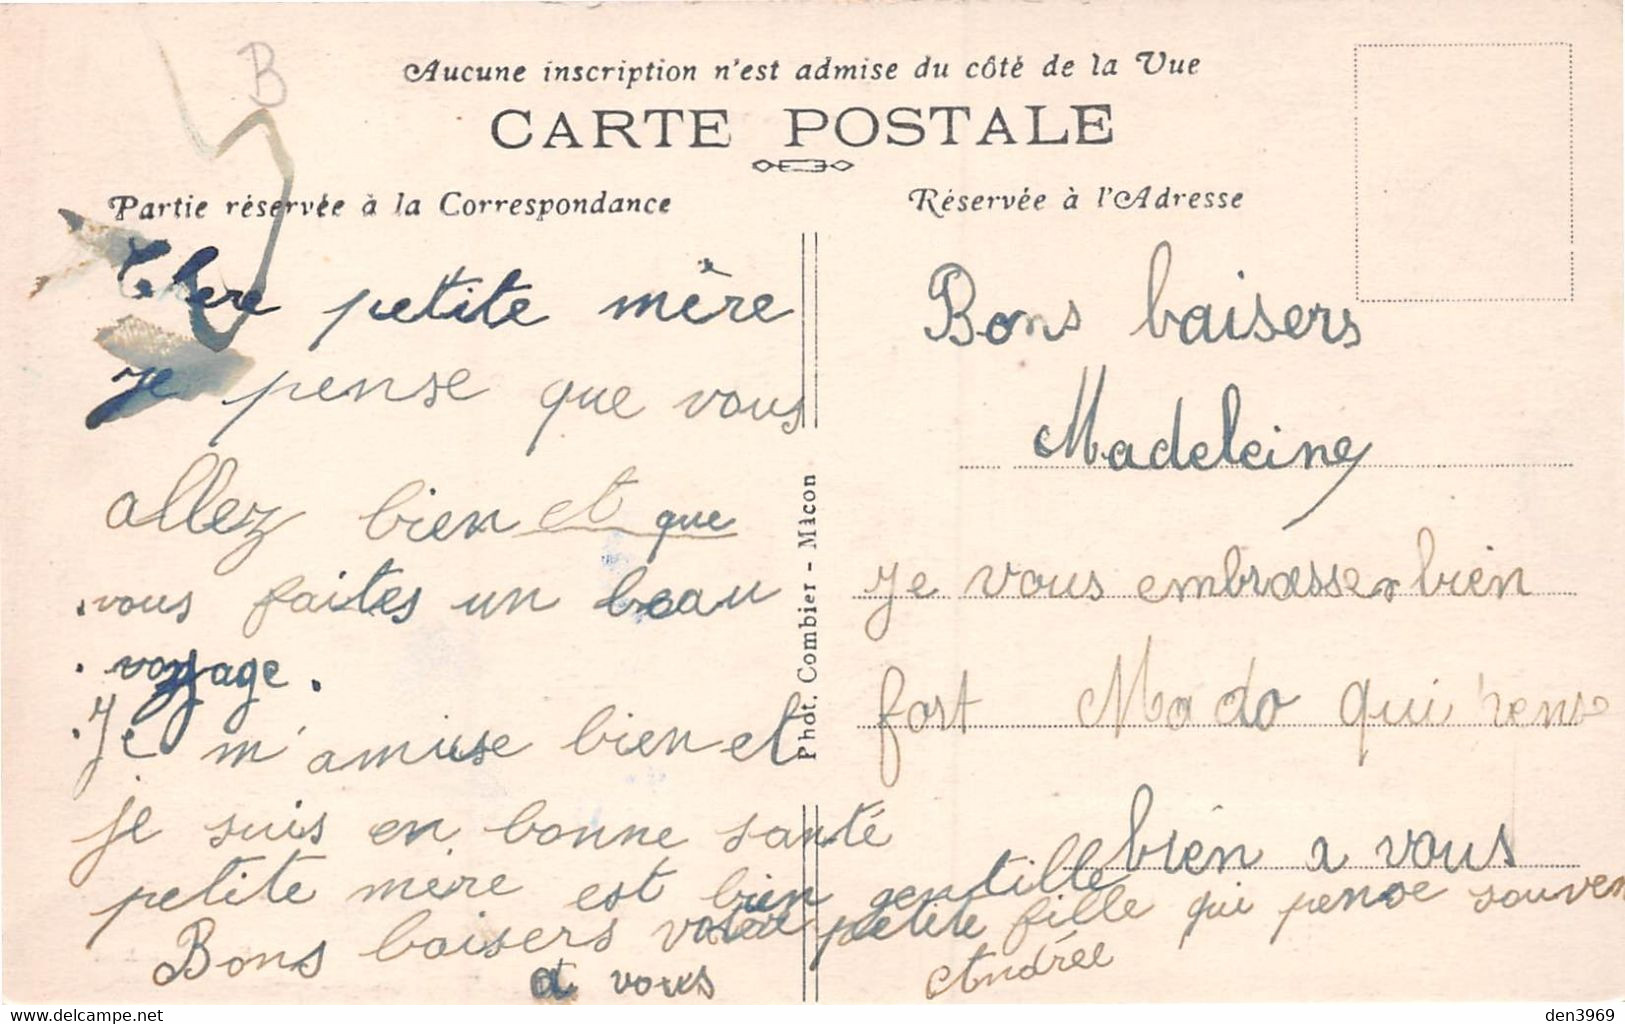 B
Aucune inscription n'est admise du côté de la Vue
CARTE POSTALE
Partie réservée à la Correspondance
Chere petite mère
Je pense que vous
allez bien et que
vous faites un beau
voyage.
Je m'amuse bien et
je suis en bonne santé
petite mère est bien gentille
Bons baisers votre petite fille qui pense souven
a vous
Andrée
Phot. Combier - Mâcon
Réservée à l'Adresse
Bons baisers
Madeleine
Je vous embrasse bien
fort Mado qui pense
bien a vous
www.delcampe.net
den3969